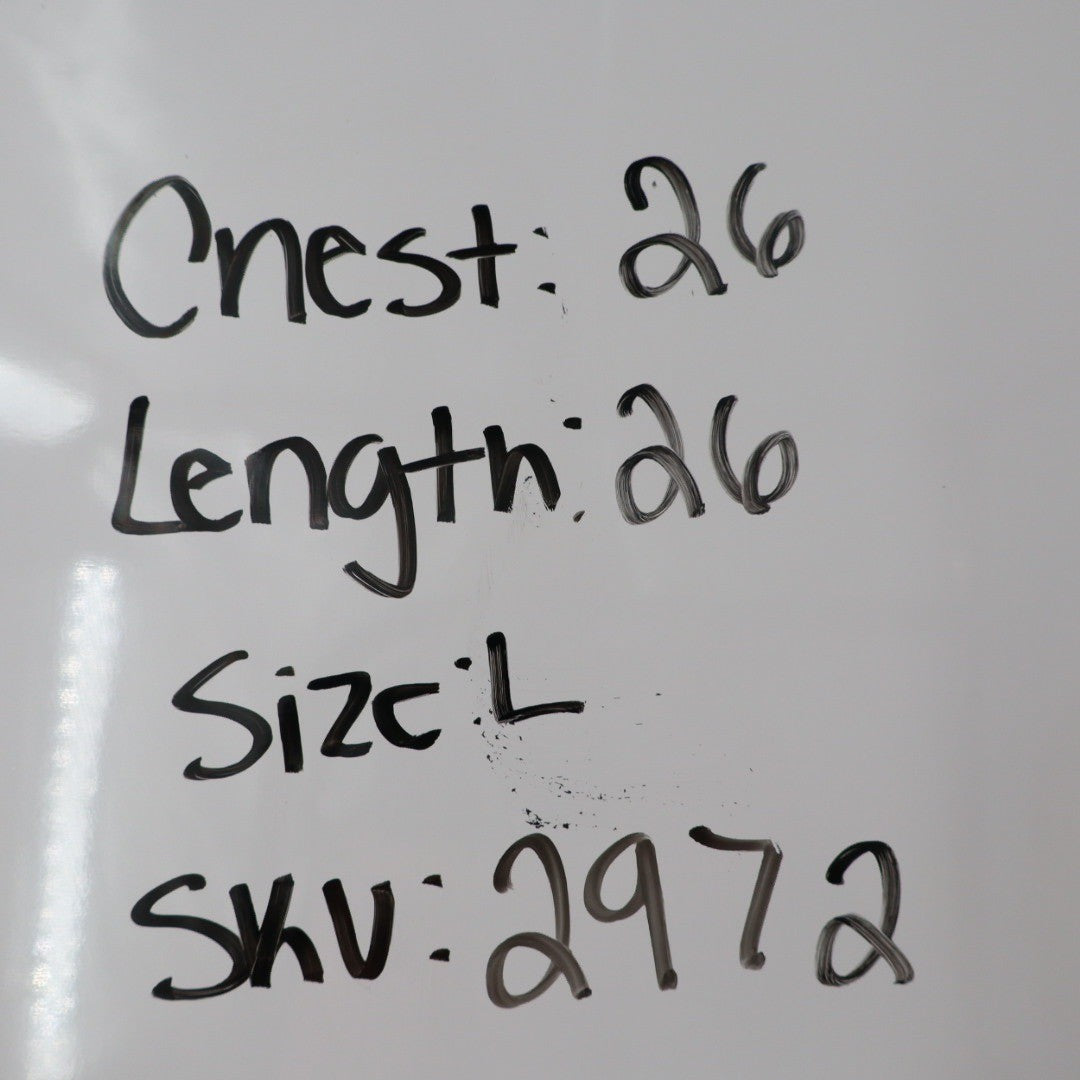 Chest: 26
Length: 26
Size: L
SKU: 2972